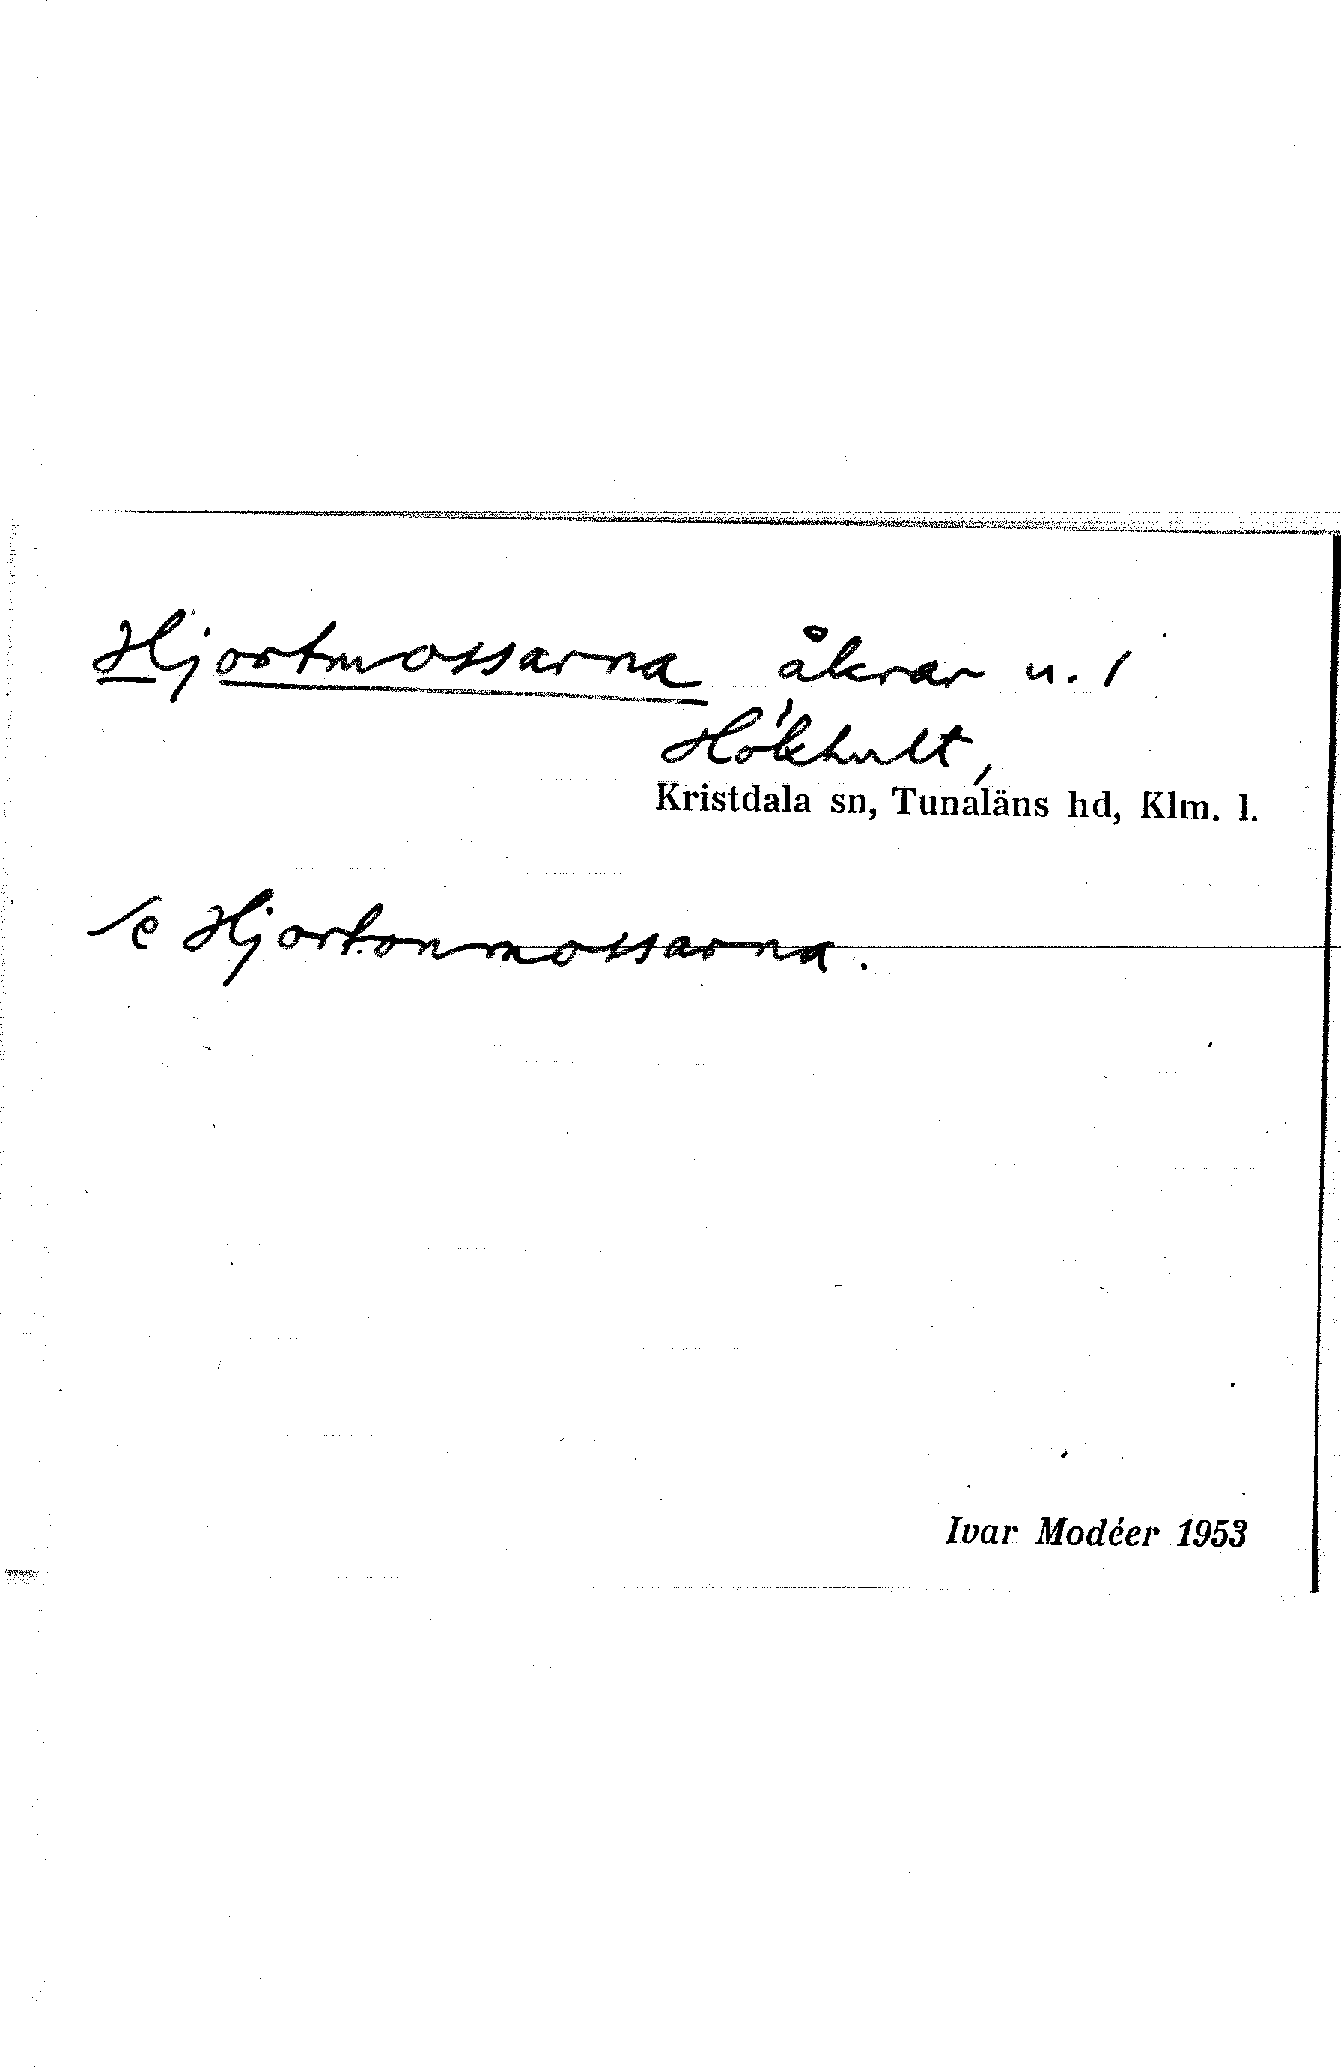 Hjortmossarna åkrar u. 1
Hökhult,
Kristdala sn, Tunaläns hd, Klm. l.
Hjortonmossarna.
Ivar Modéer 1953